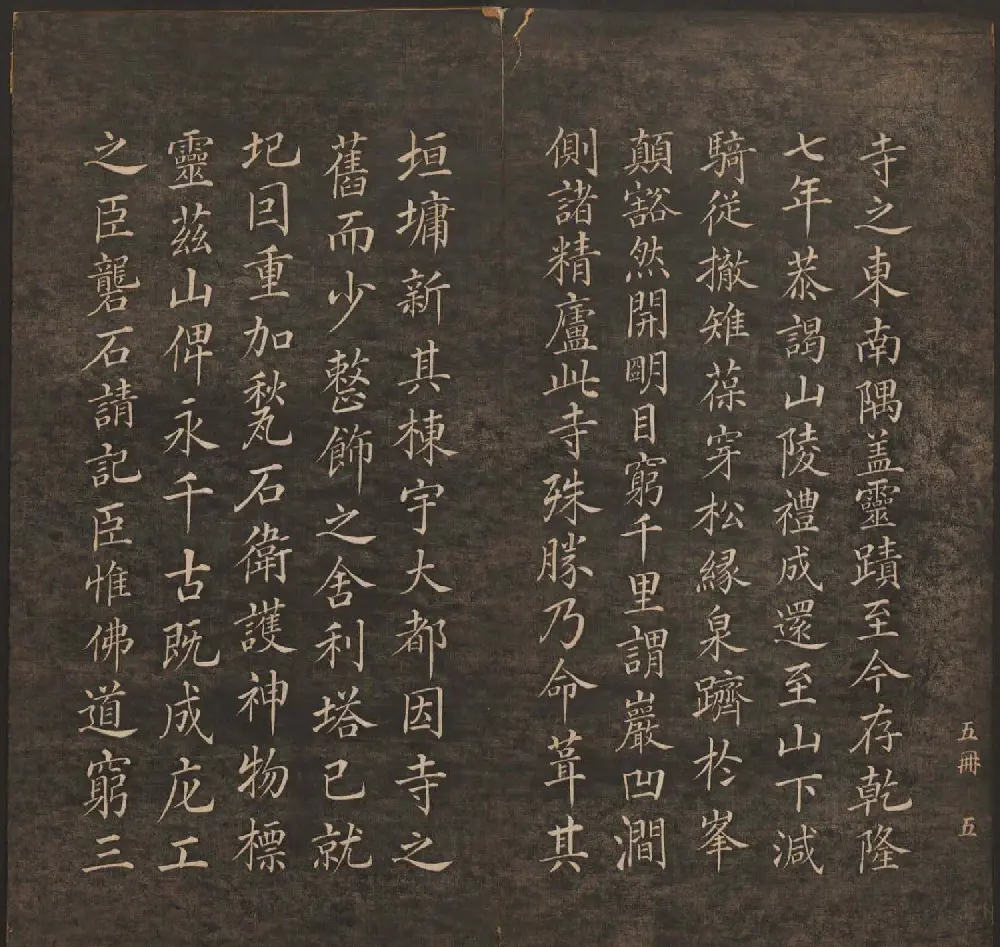 五冊 五
寺之東南隅盖靈蹟至今存乾隆
七年恭謁山陵禮成還至山下減
騎從撤雉葆穿松緣泉躋於峯
顛豁然開朙目窮千里謂巖凹澗
側諸精廬此寺殊勝乃命葺其
垣墉新其棟宇大都因寺之
舊而少整飾之舍利塔已就
圮囙重加甃石衛護神物標
靈茲山俾永千古既成庀工
之臣礱石請記臣惟佛道窮三